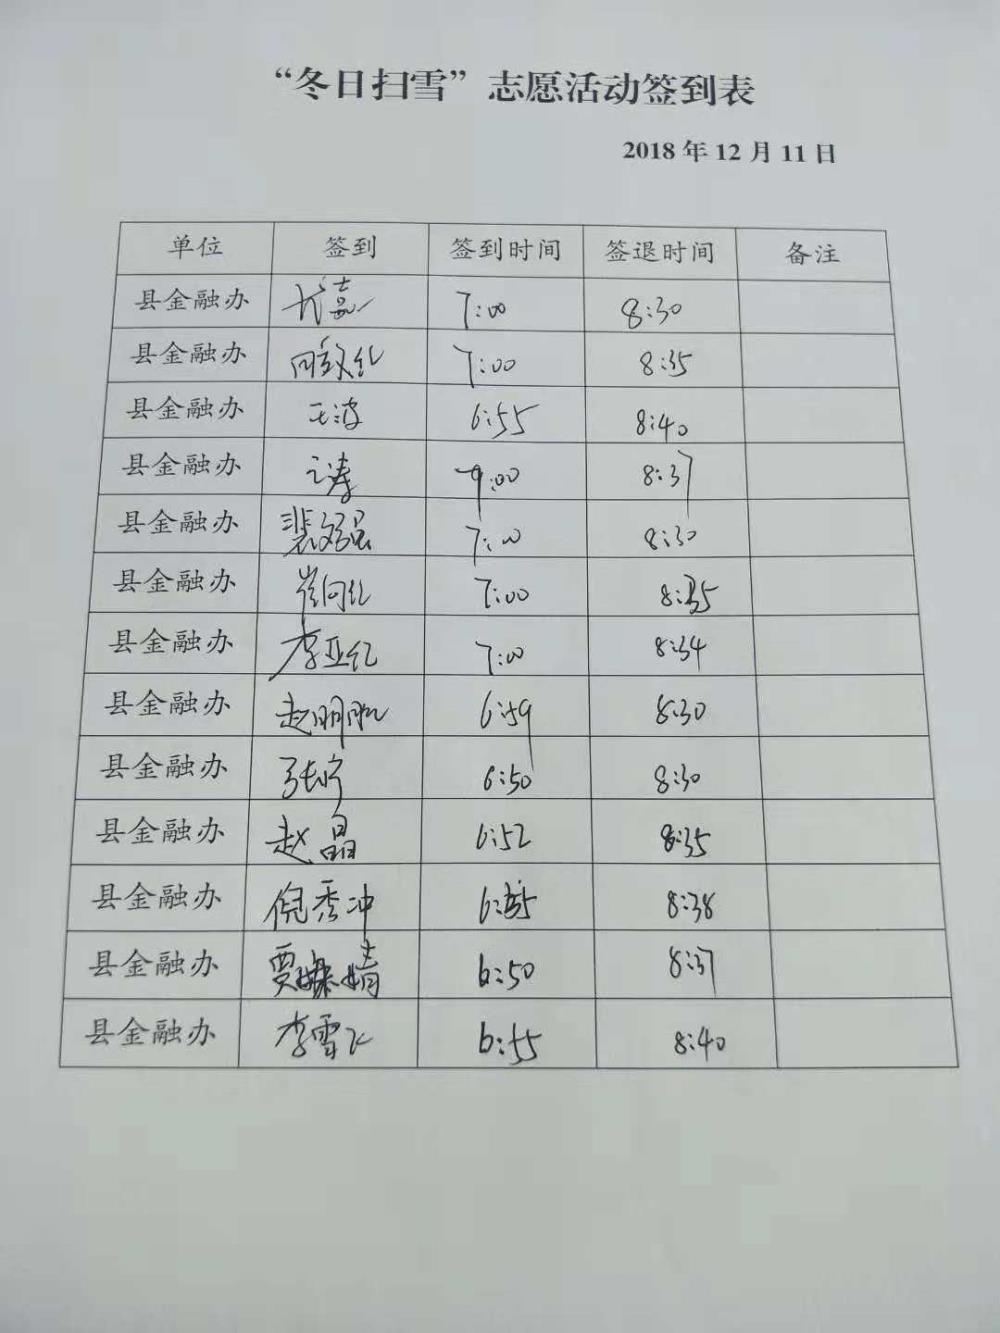 “冬日扫雪”志愿活动签到表
2018 年 12 月 11 日
单位 签到 签到时间 签退时间 备注
县金融办 7:00 8:30
县金融办 7:00 8:35
县金融办 王波 6:55 8:40
县金融办 8:37
县金融办 7:00 8:30
县金融办 崔向红 7:00 8:35
县金融办 李亚红 7:00 8:34
县金融办 6:59 8:30
县金融办 张宁 6:50 8:30
县金融办 赵晶 6:52 8:35
县金融办 倪秀冲 8:38
县金融办 6:50 8:37
县金融办 李雪飞 6:55 8:40